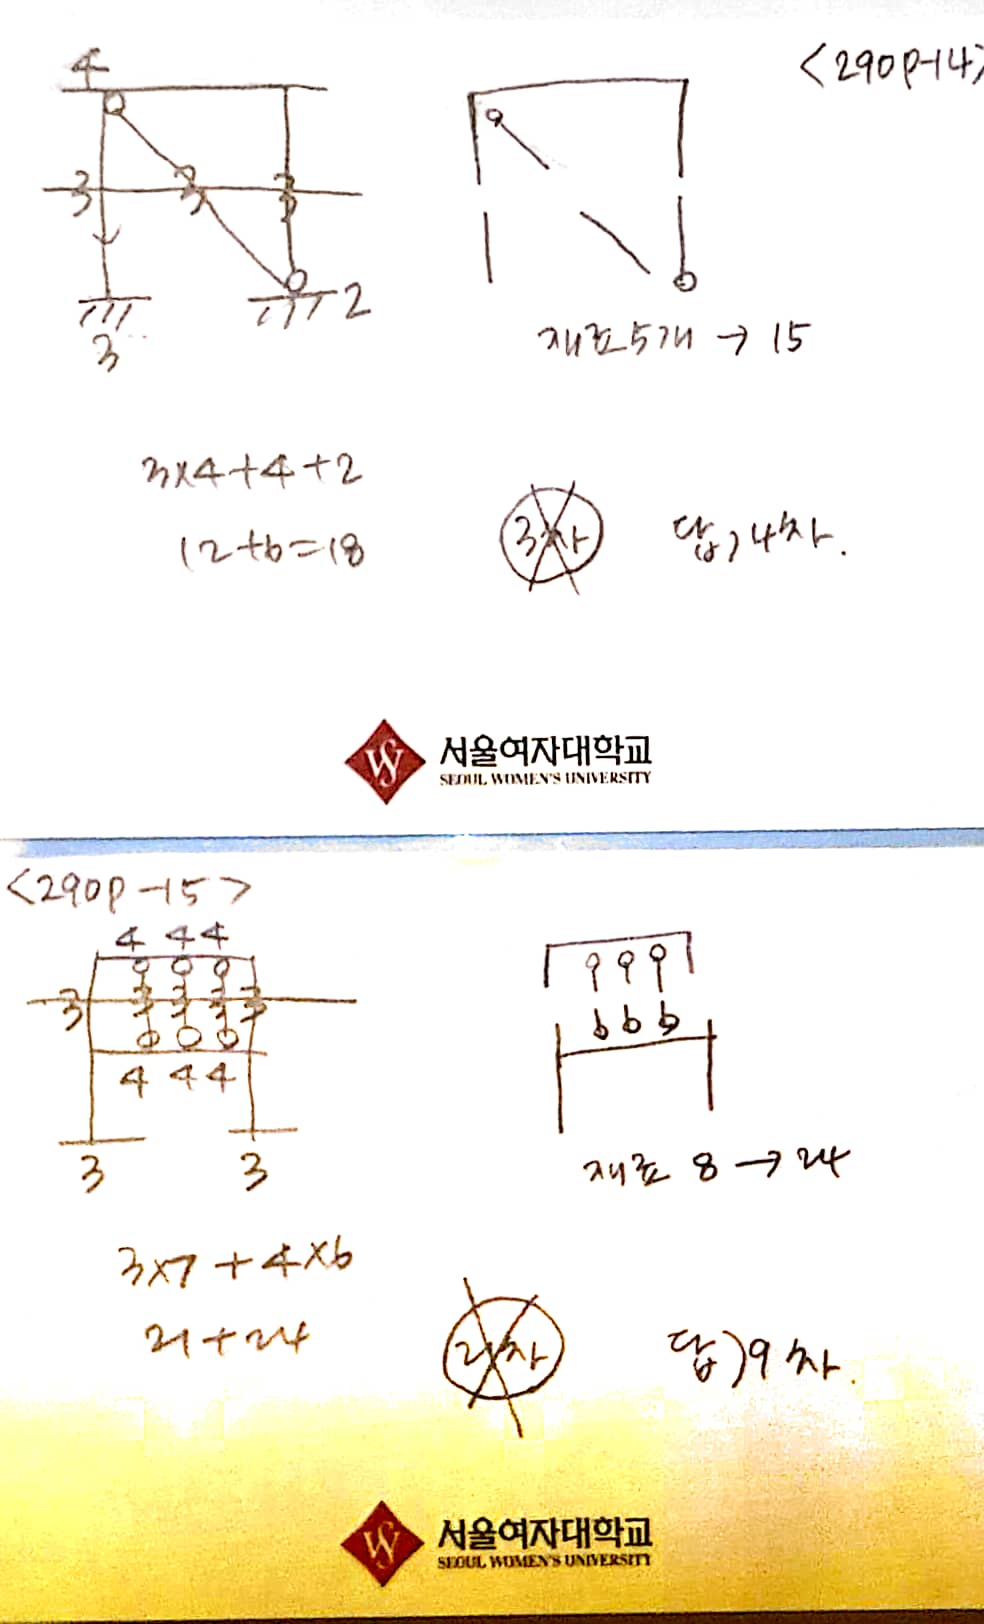 <290p-14>
4
3 3 3
3 2
재료 5개 → 15
3×4+4+2
12+6=18
3차
답) 4차.
서울여자대학교
SEOUL WOMEN'S UNIVERSITY
<290p-15>
4 4 4
3 3 3 3 3
3 3 3
4 4 4
3 3
재료 8 → 24
3×7+4×6
21+24
21차
답) 9차.
서울여자대학교
SEOUL WOMEN'S UNIVERSITY